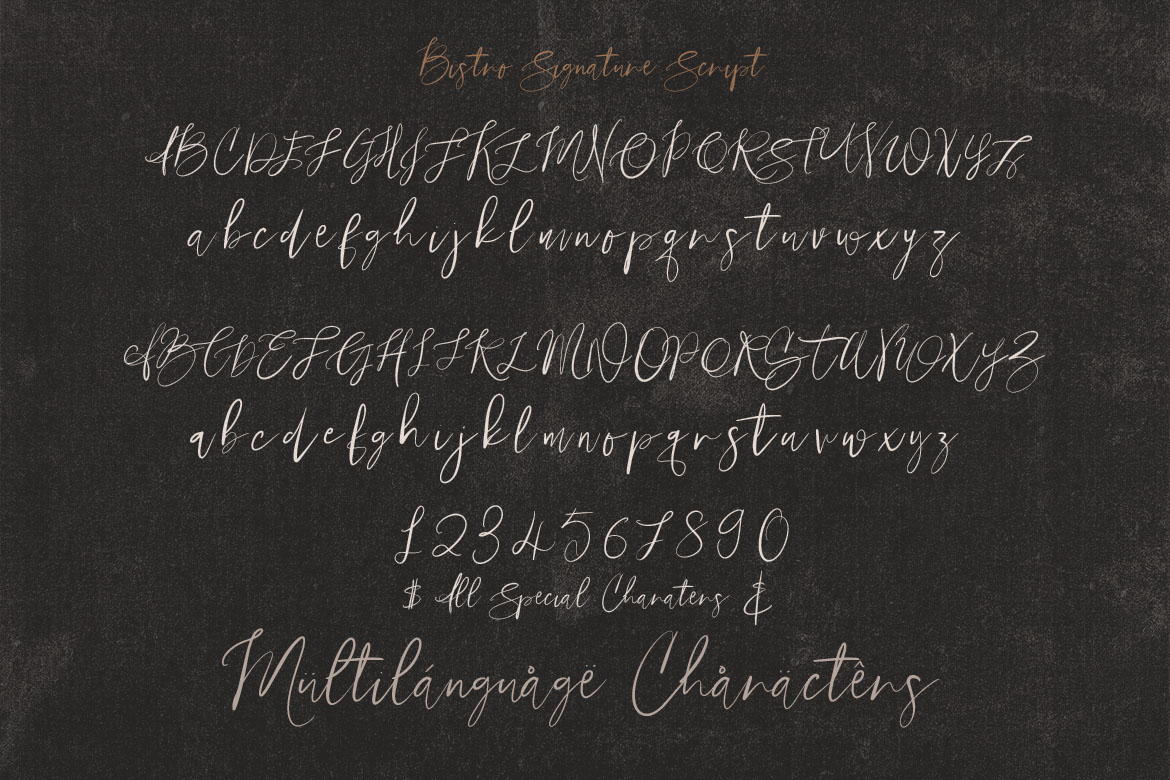 Bistro Signature Script
ABCDEFGHIJKLMNOPQRSTUVWXYZ
abcdefghijklmnopqrstuvwxyz
ABCDEFGHIJKLMNOPQRSTUVWXYZ
abcdefghijklmnopqrstuvwxyz
1234567890
$ All Special Charaters &
Mültilánguågë Chåräctêrs